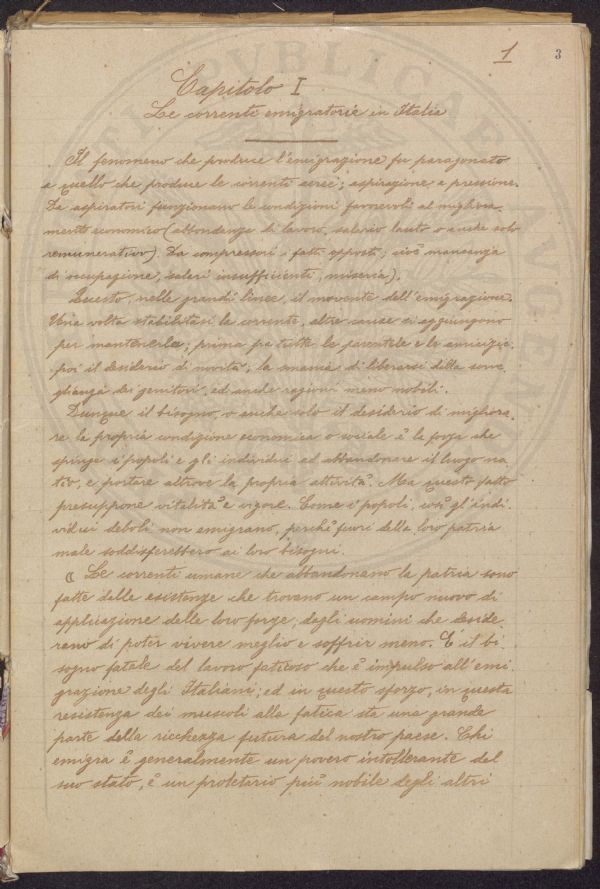 1
3
Capitolo I
Le correnti emigratorie in Italia
Il fenomeno che produce l'emigrazione fu paragonato
a quello che produce le correnti aeree; aspirazione e pressione.
Da aspiratori funzionano le condizioni favorevoli al migliora-
mento economico (abbondanza di lavoro, salario lauto o anche solo
remunerativo). Da compressori i fatti opposti; cioè mancanza
di occupazione, salari insufficienti, miseria).
Questo, nelle grandi linee, il movente dell'emigrazione.
Una volta stabilitasi la corrente, altre cause si aggiungono
per mantenerla; prima fra tutte le parentele e le amicizie,
poi il desiderio di novità, la smania di liberarsi dalla sorve-
glianza dei genitori, ed anche ragioni meno nobili.
Dunque il bisogno, o anche solo il desiderio di migliora-
re la propria condizione economica o sociale è la forza che
spinge i popoli e gli individui ad abbandonare il luogo na-
tìo, e portare altrove la propria attività. Ma questo fatto
presuppone vitalità e vigore. Come i popoli, così gl'indi-
vidui deboli non emigrano, perchè fuori della loro patria
male soddisferebbero ai loro bisogni.
"Le correnti umane che abbandonano la patria sono
fatte dalle esistenze che trovano un campo nuovo di
applicazione delle loro forze, dagli uomini che deside-
rano di poter vivere meglio e soffrir meno. E' il bi-
sogno fatale del lavoro faticoso che è impulso all'emi-
grazione degli Italiani; ed in questo sforzo, in questa
resistenza dei muscoli alla fatica sta una grande
parte della ricchezza futura del nostro paese. Chi
emigra è generalmente un povero intollerante del
suo stato, è un proletario più nobile degli altri